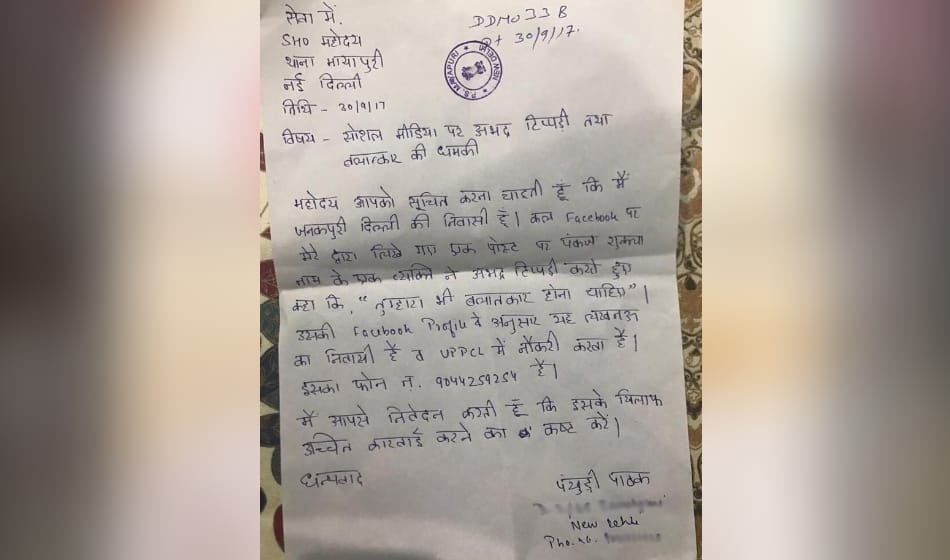 सेवा में,
SHO महोदय
थाना मायापुरी
नई दिल्ली
तिथि - 30/9/17
DD No 33 B
Dt 30/9/17.
P.S. MAYAPURI
NEW DELHI
विषय - सोशल मीडिया पर अभद्र टिप्पड़ी तथा
बलात्कार की धमकी
महोदय आपको सूचित करना चाहती हूँ कि मैं
जनकपुरी दिल्ली की निवासी हूँ। कल Facebook पर
मेरे द्वारा लिखे गए एक पोस्ट पर पंकज शुक्ला
नाम के एक व्यक्ति ने अभद्र टिप्पड़ी करते हुए
कहा कि, "तुम्हारा भी बलात्कार होना चाहिए"।
उसकी Facebook Profile के अनुसार यह लखनऊ
का निवासी है व UPPCL में नौकरी करता है।
इसका फोन न. 9044259254 है।
मैं आपसे निवेदन करती हूँ कि इसके खिलाफ
उच्चित कारवाई करने का कष्ट करें।
धन्यवाद
पंखुड़ी पाठक
New Delhi
Pho. no.